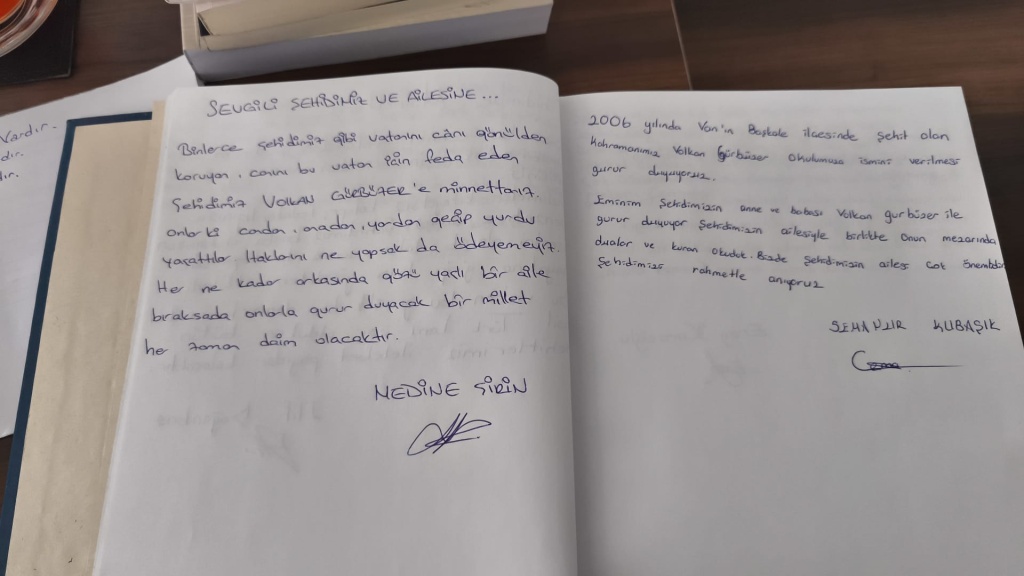 Vardır.
dır.
ır.
SEVGİLİ ŞEHİDİMİZ VE AİLESİNE...
Binlerce şehidimiz gibi vatanını cânı gönülden
koruyan, canını bu vatan için feda eden
Şehidimiz VOLKAN GÜRBÜZER'e minnettarız.
onlar ki candan, anadan, yardan geçip yurdu
yaşattılar Haklarını ne yapsak da ödeyemeyiz.
Her ne kadar arkasında gözü yaşlı bir aile
bıraksada onlarla gurur duyacak bir millet
he zaman dâim olacaktır.
MEDİNE ŞİRİN
2006 yılında Van'ın Başkale ilçesinde şehit olan
kahramanımız Volkan Gürbüzer okulumuza ismini verilmesi
gurur duyuyoruz.
Eminim Şehdimizin anne ve babası Volkan gurbüzer ile
gurur duyuyor Şehdimizin ailesiyle birlikte onun mezarında
dualar ve kuran okuduk. Bizde Şehdimizin ailesi çok önemlidir
Şehdimizi rahmetle anıyoruz
SEHANUR KUBAŞIK